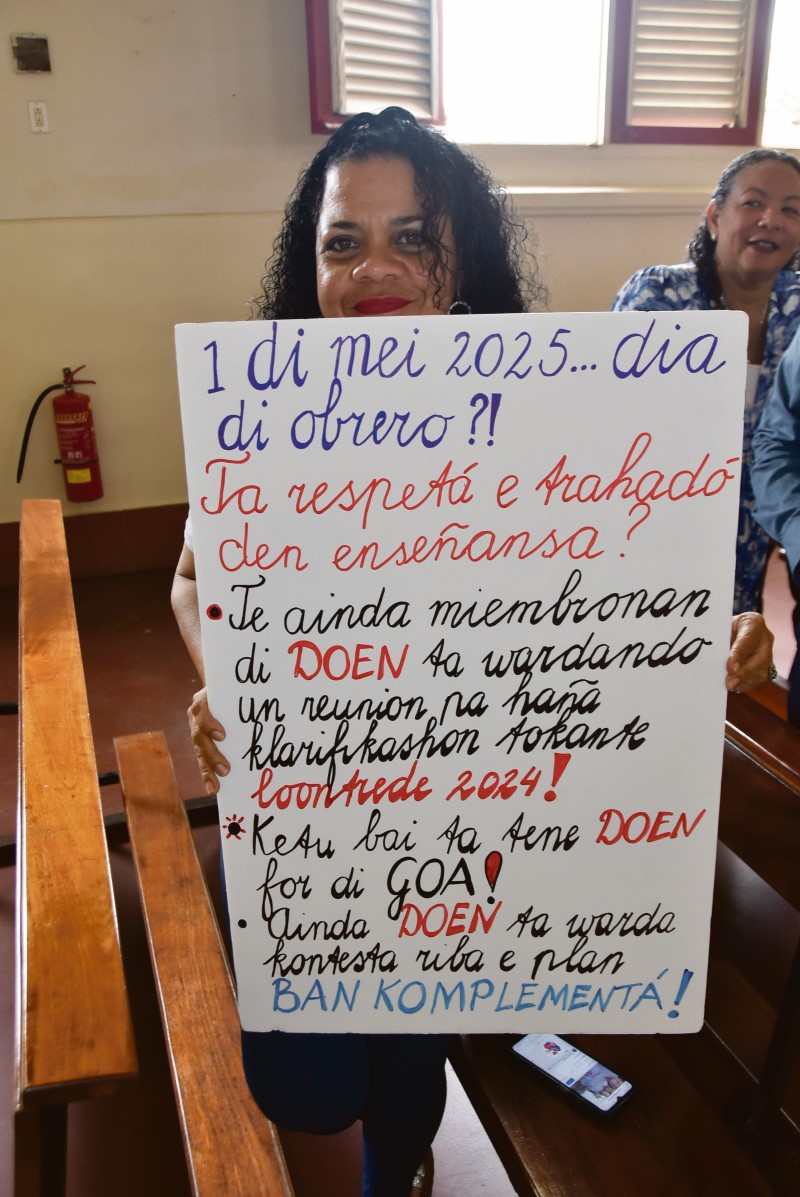 1 di mei 2025... dia
di obrero?!
Ta respetá e trahadó
den enseñansa?
Te ainda miembronan
di DOEN ta wardando
un reunion pa haña
klarifikashon tokante
loontrede 2024!
Ketu bai ta tene DOEN
for di GOA!
Ainda DOEN ta warda
kontesta riba e plan
BAN KOMPLEMENTÁ!